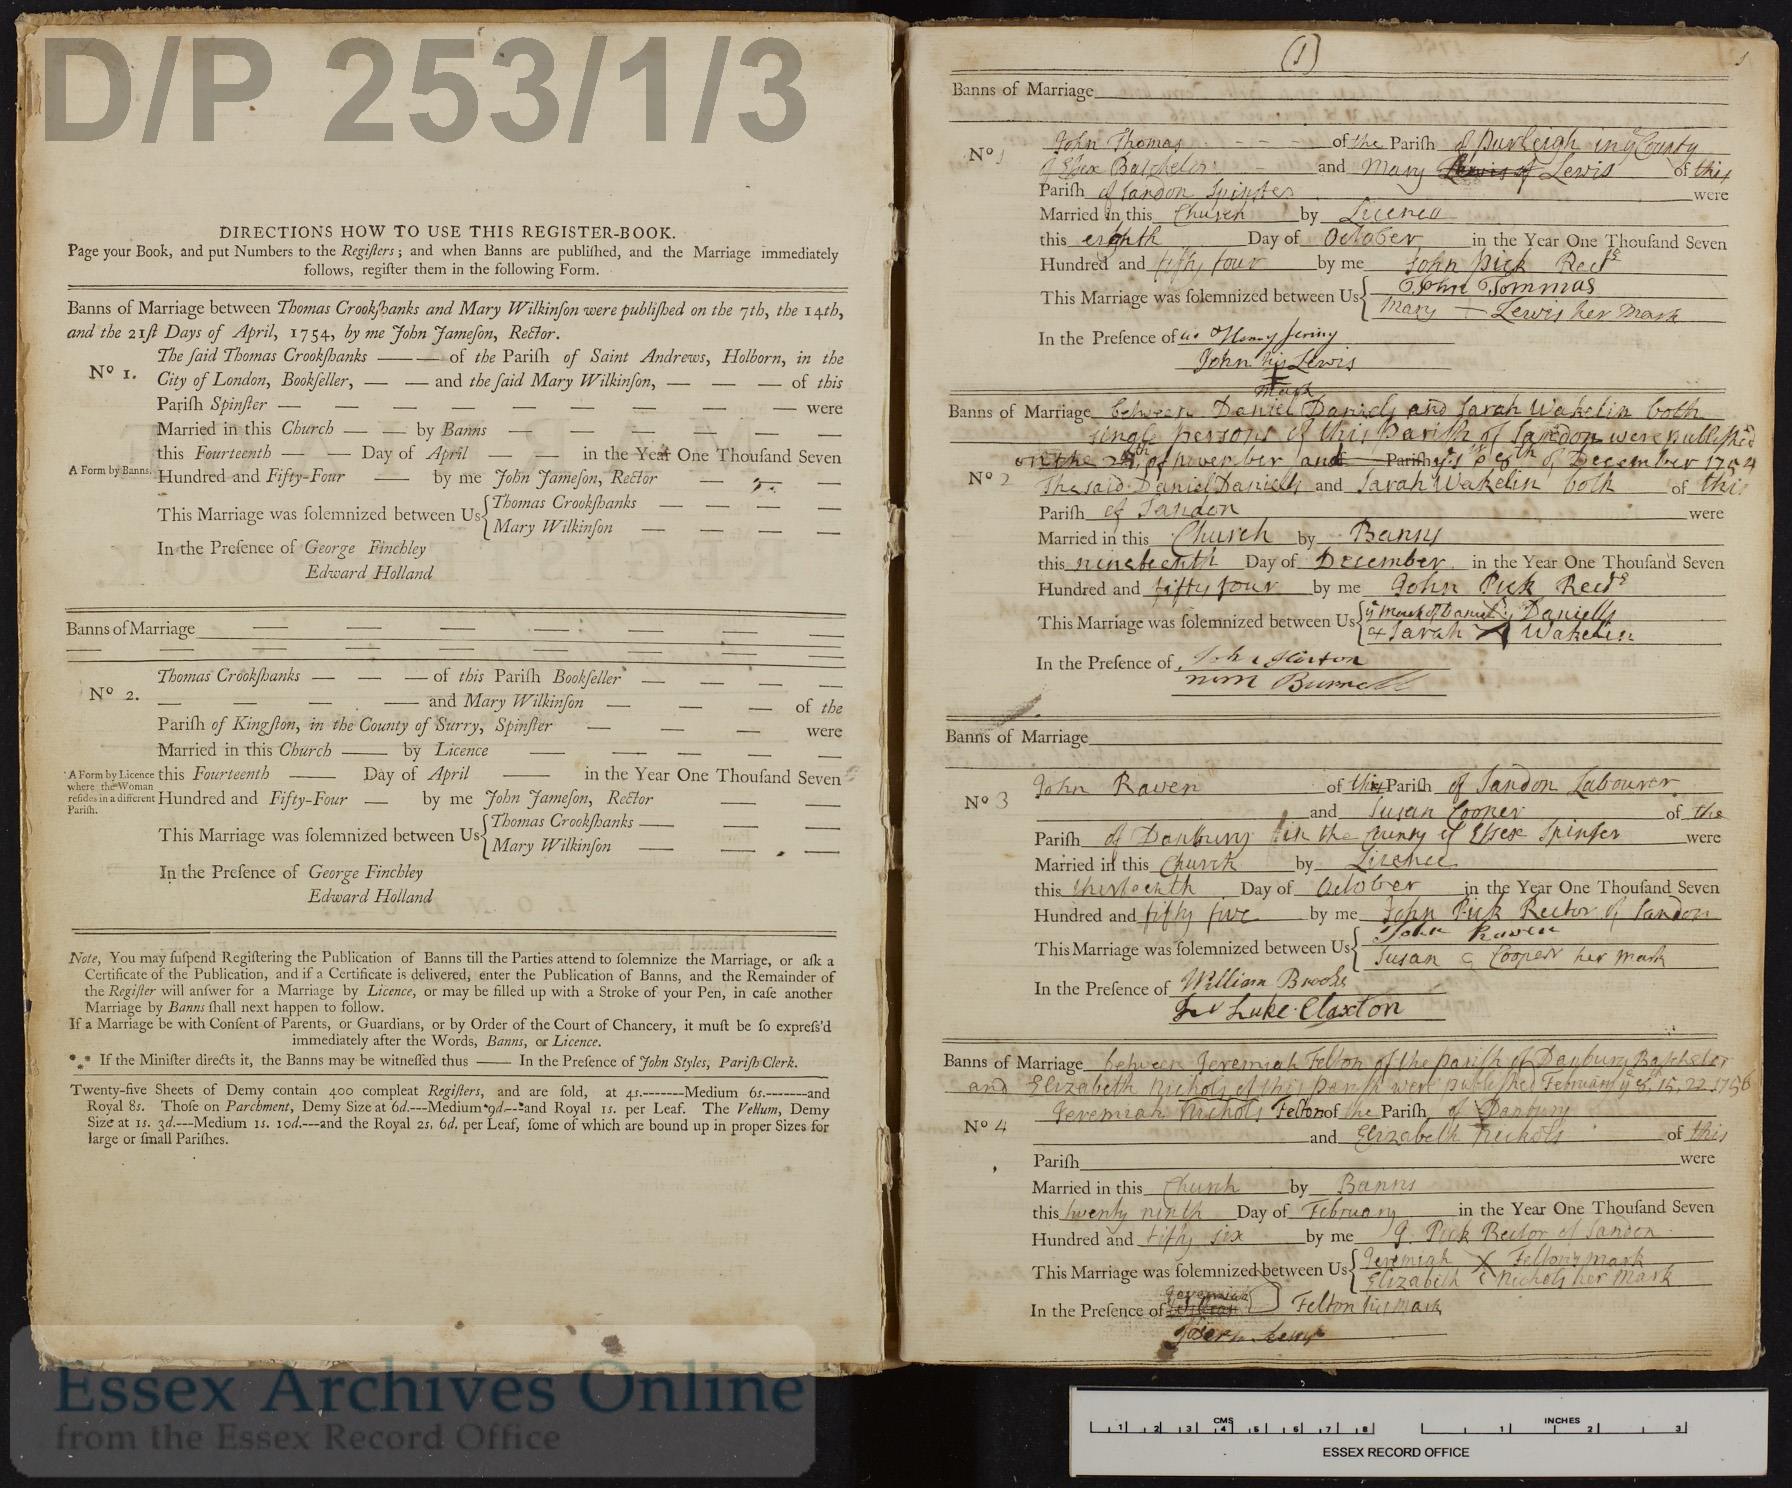 D/P 253/1/3
DIRECTIONS HOW TO USE THIS REGISTER-BOOK.
Page your Book, and put Numbers to the Regiſters; and when Banns are publiſhed, and the Marriage immediately
follows, regiſter them in the following Form.
Banns of Marriage between Thomas Crookſhanks and Mary Wilkinſon were publiſhed on the 7th, the 14th,
and the 21ſt Days of April, 1754, by me John Jameſon, Rector.
The ſaid Thomas Crookſhanks — — of the Pariſh of Saint Andrews, Holborn, in the
No 1. City of London, Bookſeller, — — and the ſaid Mary Wilkinſon, — — — of this
Pariſh Spinſter — — — — — — — — — were
Married in this Church — — by Banns — — — — — — —
this Fourteenth — — Day of April — — in the Year One Thouſand Seven
A Form by Banns. Hundred and Fifty-Four — by me John Jameſon, Rector — — — —
This Marriage was ſolemnized between Us { Thomas Crookſhanks — — — —
Mary Wilkinſon — — — —
In the Preſence of George Finchley
Edward Holland
Banns of Marriage — — — — — — —
— — — — — — — —
Thomas Crookſhanks — — — of this Pariſh Bookſeller — — — —
No 2. — — — — and Mary Wilkinſon — — — of the
Pariſh of Kingſton, in the County of Surry, Spinſter — — — were
Married in this Church — by Licence — — — — —
A Form by Licence where the Woman reſides in a different Pariſh.
this Fourteenth — Day of April — in the Year One Thouſand Seven
Hundred and Fifty-Four — by me John Jameſon, Rector — —
This Marriage was ſolemnized between Us { Thomas Crookſhanks — — —
Mary Wilkinſon — — —
In the Preſence of George Finchley
Edward Holland
Note, You may ſuſpend Regiſtering the Publication of Banns till the Parties attend to ſolemnize the Marriage, or aſk a
Certificate of the Publication, and if a Certificate is delivered, enter the Publication of Banns, and the Remainder of
the Regiſter will anſwer for a Marriage by Licence, or may be filled up with a Stroke of your Pen, in caſe another
Marriage by Banns ſhall next happen to follow.
If a Marriage be with Conſent of Parents, or Guardians, or by Order of the Court of Chancery, it muſt be ſo expreſs'd
immediately after the Words, Banns, or Licence.
*** If the Miniſter directs it, the Banns may be witneſſed thus — In the Preſence of John Styles, Pariſh Clerk.
Twenty-five Sheets of Demy contain 400 compleat Regiſters, and are ſold, at 4s.-------Medium 6s.-------and
Royal 8s. Thoſe on Parchment, Demy Size at 6d.---Medium 9d.---and Royal 1s. per Leaf. The Vellum, Demy
Size at 1s. 3d.---Medium 1s. 10d.---and the Royal 2s. 6d. per Leaf, ſome of which are bound up in proper Sizes for
large or ſmall Pariſhes.
(1) 1
Banns of Marriage
No 1 John Thomas - - - - of the Pariſh of Purleigh in ye County
of Essex Batchelor - and Mary Lewis of Lewis of this
Pariſh of Sandon Spinster were
Married in this Church by Licence
this eighth Day of October in the Year One Thouſand Seven
Hundred and fifty four by me John Pick Rectr
This Marriage was ſolemnized between Us { John Tommas
Mary + Lewis her Mark
In the Preſence of
John his Lewis
Mark
Banns of Marriage between Daniel Daniels and Sarah Wakelin both
single persons of this Parish of Sandon were published
on the of november and Pariſh of December 1754
No 2 The said Daniel Daniells and Sarah Wakelin both of this
Pariſh of Sandon were
Married in this Church by Banns
this nineteenth Day of December in the Year One Thouſand Seven
Hundred and fifty four by me John Pick Rectr
This Marriage was ſolemnized between Us { ye mark of Daniel Daniells
& Sarah X Wakelin
In the Preſence of
Banns of Marriage
No 3 John Raven of this Pariſh of Sandon Labourer
and Susan Cooper of the
Pariſh of Danbury in the County of Essex Spinster were
Married in this Church by Licence
this thirteenth Day of October in the Year One Thouſand Seven
Hundred and fifty five by me John Pick Rector of Sandon
This Marriage was ſolemnized between Us { John Raven
Susan C Cooper her mark
In the Preſence of William Brooks
Luke Claxton
Banns of Marriage between Jeremiah Felton of the parish of Danbury Batchelor
and Elizabeth Nichols of this parish were published February ye 8, 15, 22 1756
No 4 Jeremiah Nichols Felton of the Pariſh of Danbury
and Elizabeth Nichols of this
Pariſh were
Married in this Church by Banns
this twenty ninth Day of February in the Year One Thouſand Seven
Hundred and fifty six by me J. Pick Rector of Sandon
This Marriage was ſolemnized between Us { Jeremiah X Felton's mark
Elizabeth C Nichols her Mark
In the Preſence of Jeremiah Felton his mark
Essex Archives Online
from the Essex Record Office
CMS INCHES
1 2 3 4 5 6 7 8 1 2 3
ESSEX RECORD OFFICE